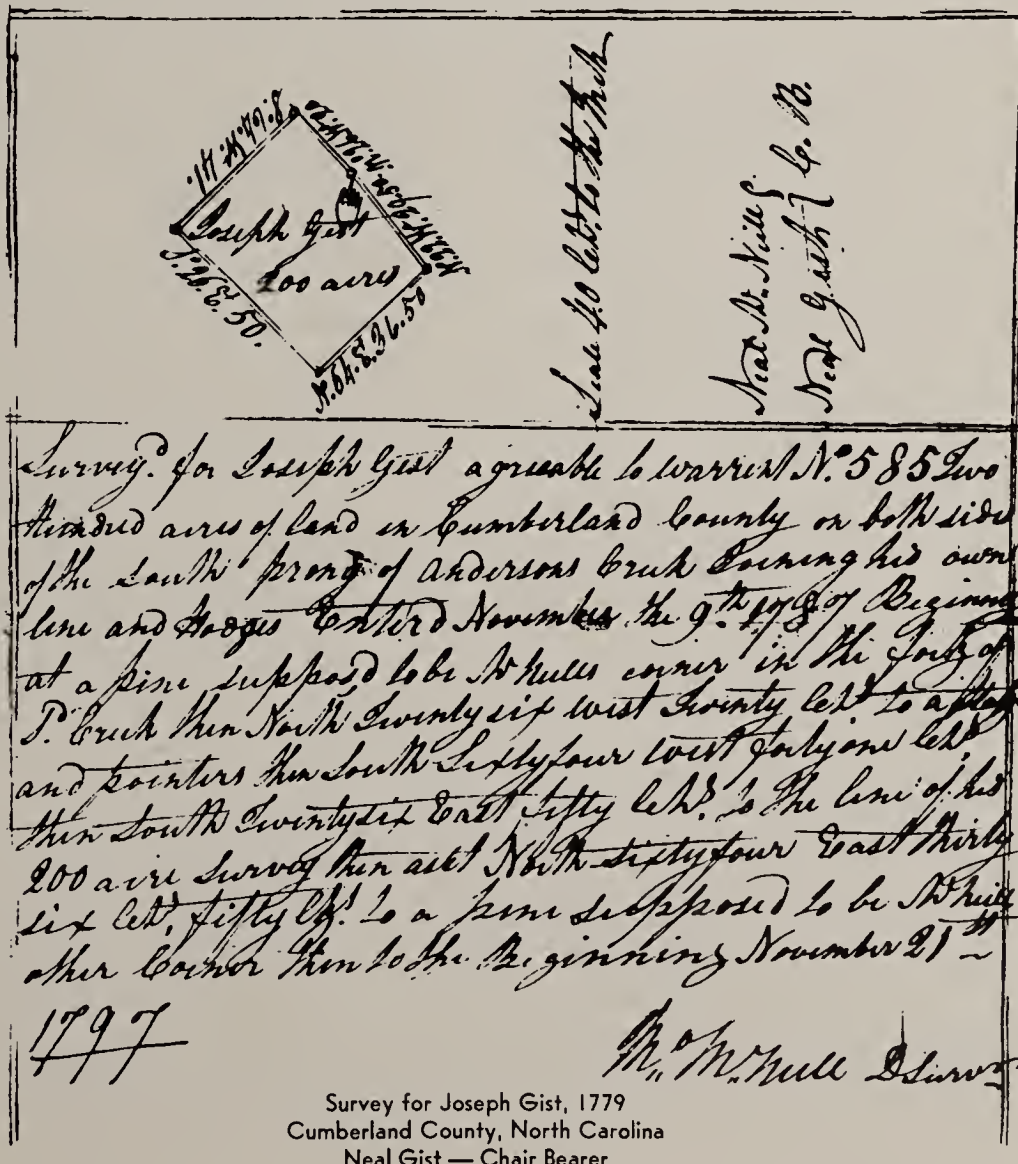 S. 64. W. 41.
N. 26. W. 20
N. 32. W. 30. 50
Joseph Gist
200 acres
S. 26. E. 50.
N. 64. E. 36. 50
Scale 40 Chs. to the Inch
Neal Mc. Neill
Neall Gist } C. B.
Survey.d for Joseph Gist agreeable to warrent No. 585 Two
Hundred acres of land in Cumberland County on both side
of the south prong of Andersons Creek Joining his own
line and Hodges Enterd November the 9th. 1787 Beginning
at a pine suppos'd to be Mc Neills corner in the fork of
Sd. Creek then North Twenty six west Twenty Chs. to a stake
and pointers then South Sixty four west forty one Chs.
then South Twenty six East fifty Chs. to the line of his
200 acre survey then North sixty four East thirty
six Chs. fifty Lks. to a pine supposed to be Mc Neills
other Corner then to the Beginning November 21st
1797
Mc. Neill D Survr
Survey for Joseph Gist, 1779
Cumberland County, North Carolina
Neal Gist — Chair Bearer